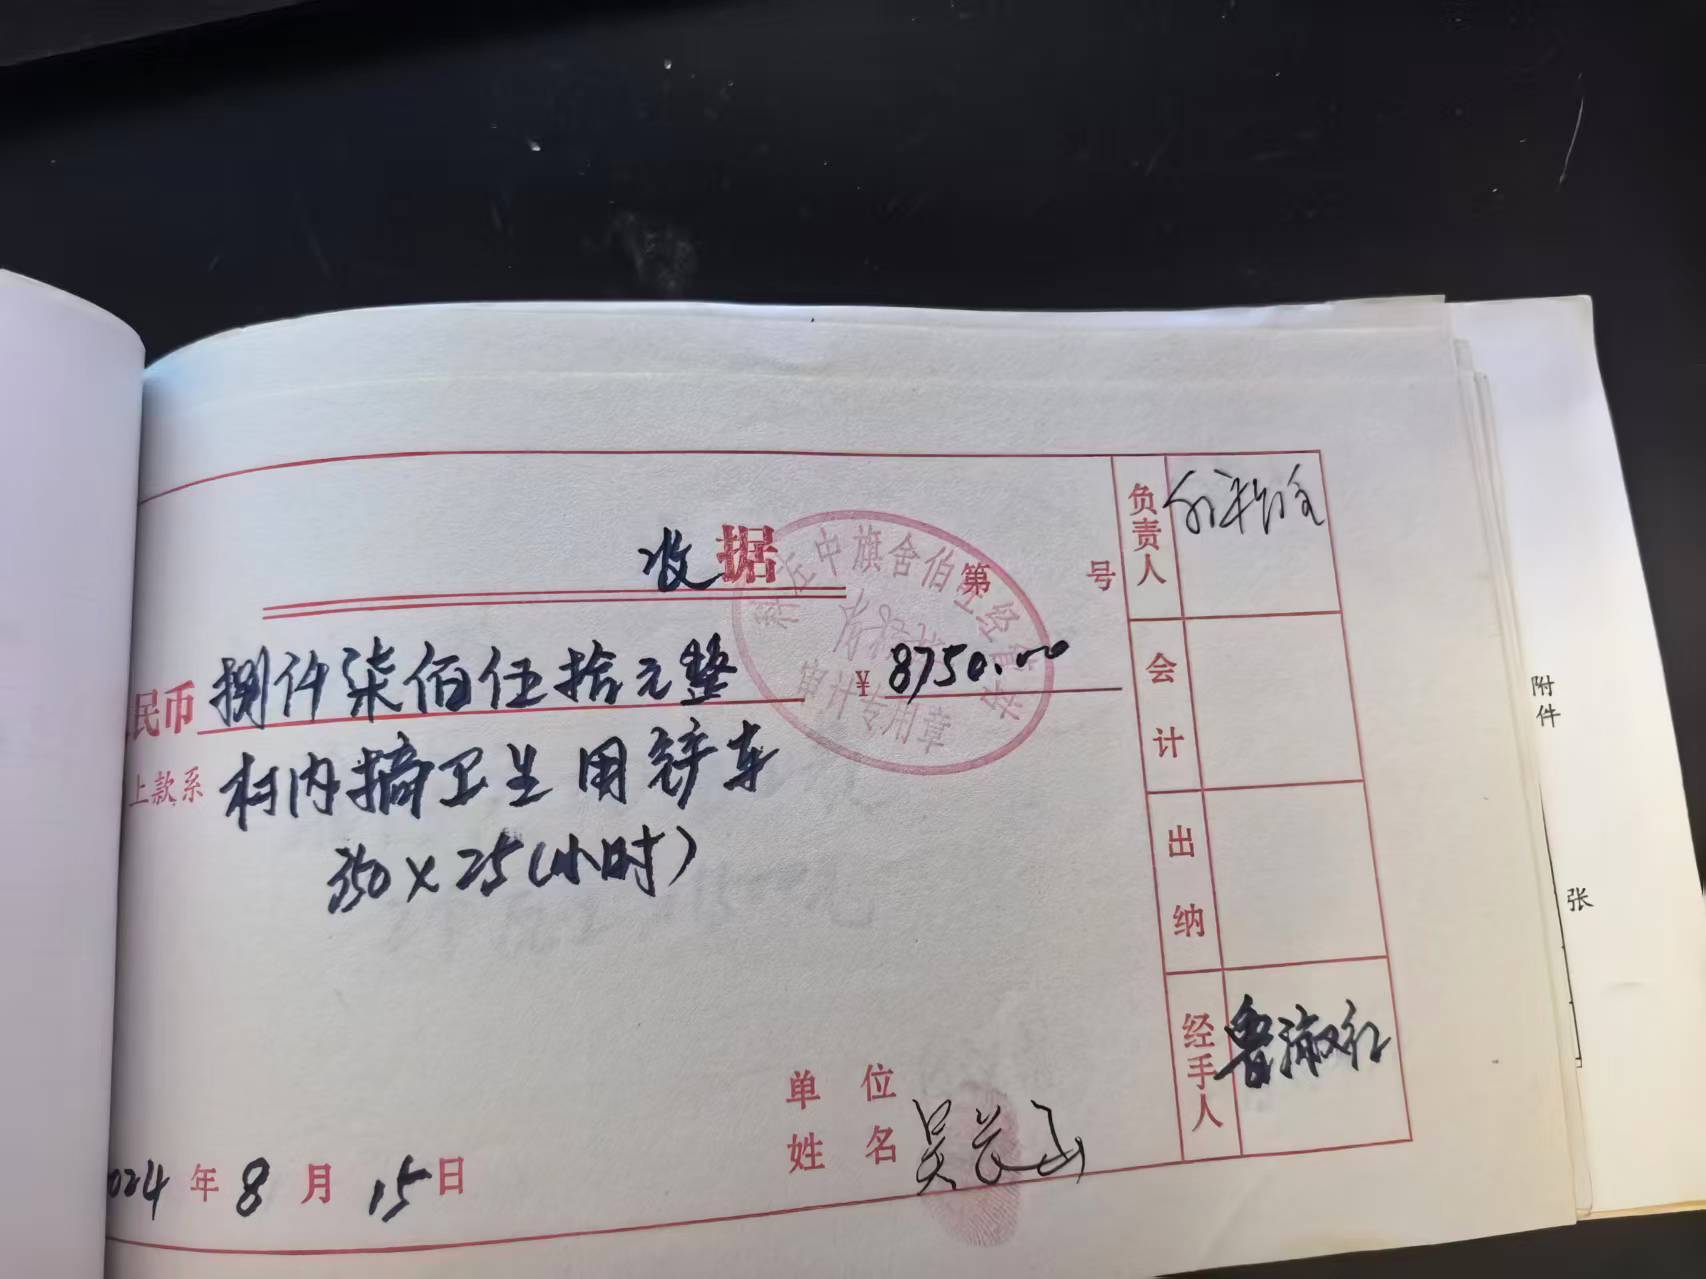 收据
第 号
民币 捌仟柒佰伍拾元整 ¥ 8750.00
上款系 村内搞卫生用铲车
350×25(小时)
单位
姓名 吴长山
2024年8月15日
负责人
会计
出纳
经手人 鲁淑红
左中旗舍伯吐经管站
审计专用章
附件
张